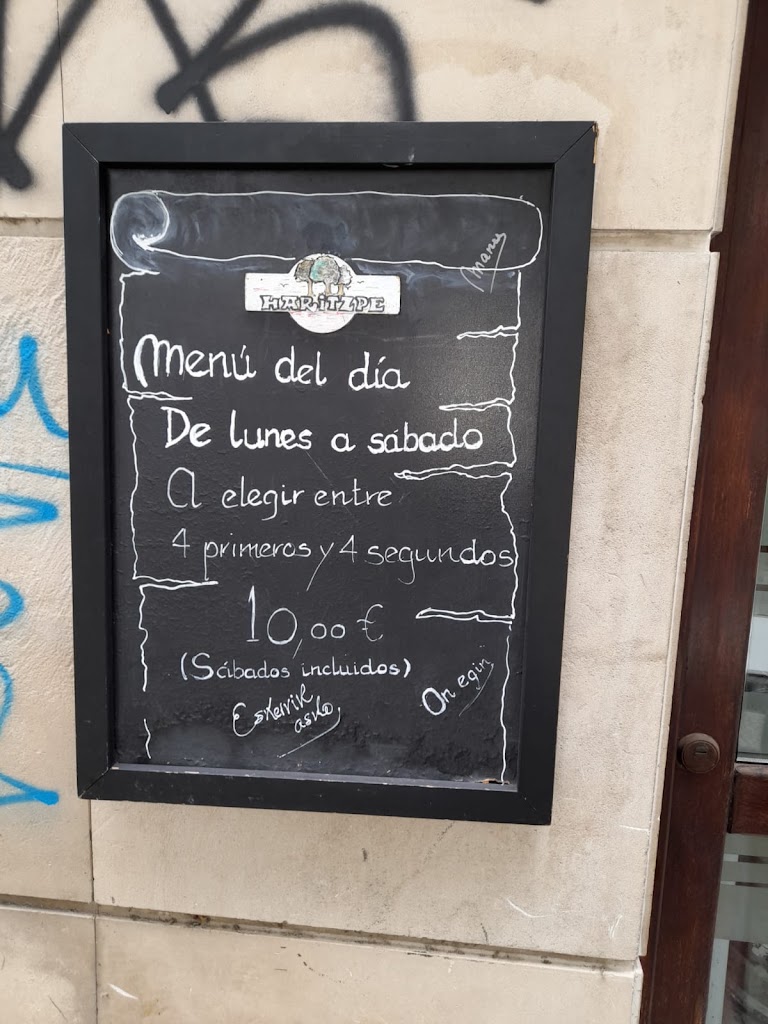 manu
HARITZPE
Menú del día
De lunes a sábado
A elegir entre
4 primeros y 4 segundos
10,00 €
(Sábados incluidos)
Eskerrik
asko
On egin